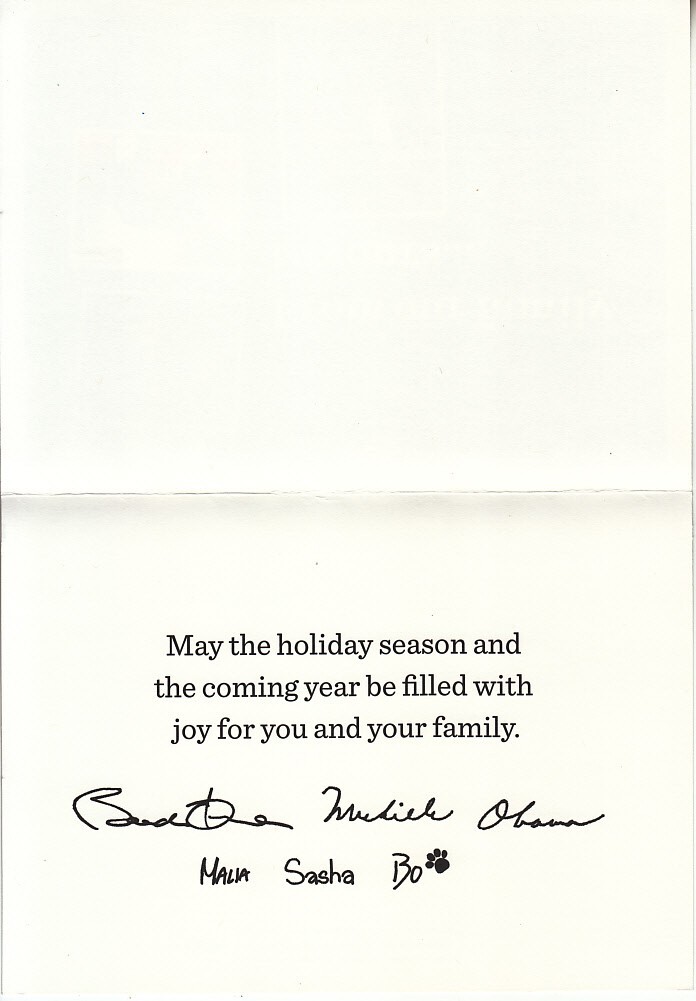 May the holiday season and
the coming year be filled with
joy for you and your family.
Michelle Obama
MALIA Sasha Bo